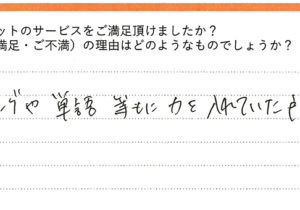 ットのサービスをご満足頂けましたか？
満足・ご不満）の理由はどのようなものでしょうか？
グや 単語 等もに力を入れていた